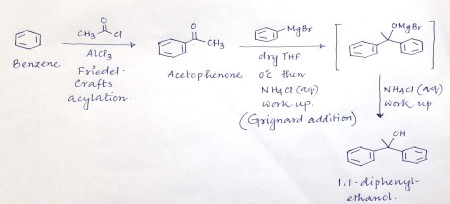 CH3 O Cl
AlCl3
Friedel-
Crafts
acylation.
Benzene
O
CH3
Acetophenone
MgBr
dry THF
0°C then
NH4Cl (aq)
work up.
(Grignard addition)
OMgBr
NH4Cl (aq)
Work up
OH
1,1-diphenyl-
ethanol.